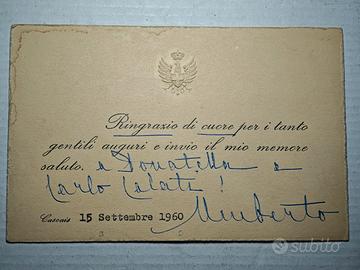 Ringrazio di cuore per i tanto
gentili auguri e invio il mio memore
saluto. a Donatella e
Carlo Calati !
Cascais 15 Settembre 1960 Umberto
subito